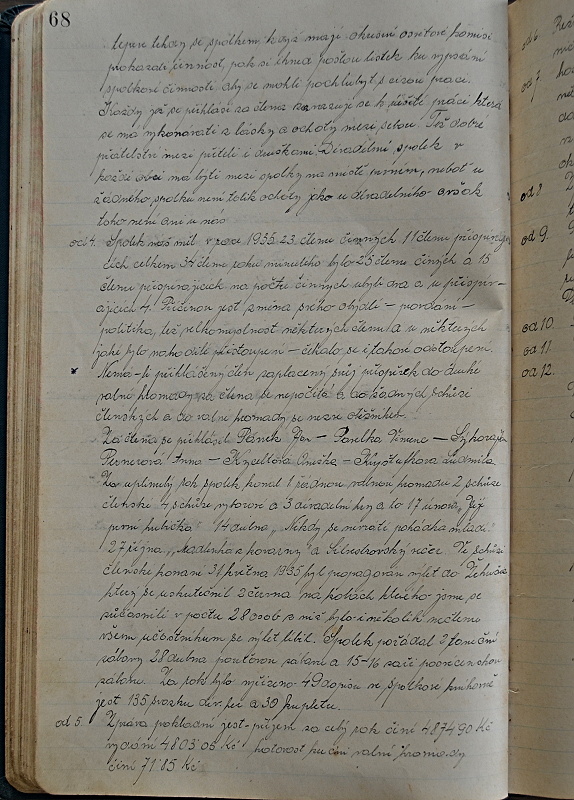 68
lepre lehory se spolkem když mají okusiti osvětové komisi
prokázati činnost, pak si ihned poštou lístek ku vypsání
spolkové činnosti aby se mohli pochlubyt s cizou prací.
Každý jež se přihlásí za člena zavazuje se k práci která
se má vykonávati z lásky a ochoty mezi sebou. Též dobré
přátelství mezi přáteli i družkami. Divadelní spolek v
každé obci má býti mezi spolky na místě prvním, neboť u
žádného spolku není tolik ochoty jako u divadelního avšak
toho není ani u nás
od 4. Spolek náš měl v roce 1935 23 členů činných 11 členů přispívaj-
ících celkem 34 členů roku minulého bylo 25 členů činých a 15
členů přispívajících na počtu činných ubyli dva a u přispív-
ajících 4. Příčinou jest změna svého obydlí – povolání –
politika, též velkomyslnost některých členů a u některých
jaké bylo nahodilé přistoupení – čekalo se i takové odstoupení.
Nemá-li přihlášený člen zaplacený svůj příspěvek do druhé
valné hromady za člena se nepočítá a do žádných schůzí
členských a do valné hromady se nezve
Za člena se přihlásil Pánek Jan – Pavelka Vincenc – Sýkora
Pernerová Anna – Kysellová Anežka – Kryštufková Ludmila
Za uplynulý rok spolek konal 1 řádnou valnou hromadu 2 schůze
členské 4 schůze výborové a 3 divadelní hry a to 17 února „Její
první hubička“ 14 dubna „Nikdy se nevrátí pohádka mládí“
27 října „Madlenka z kovárny“ a Silvestrovský večer. V schůzi
členské konané 31 května 1935 byl propagován výlet do Žehušic
který se uskutečnil 2 června na kolách kterého jsme se
súčasnili v počtu 28 osob z nichž bylo i několik nečlenů
všem učastníkům se výlet líbil. Spolek pořádal 2 taneční
zábavy 28 dubna pouťovou zábavu a 15–16 září posvícenskou
zábavu. Za rok bylo vyřízeno 49 dopisů ve spolkové knihovně
jest 135 svazků div. her a 39 kupletů.
od 5. Zpráva pokladní jest – příjem za celý rok činí 4874.90 Kč
vydání 4803.05 Kč hotovost ku dni valné hromady
činí 71.85 Kč
od 6.
od 7.
od 8
od 9.
od 10.
od 11.
od 12.